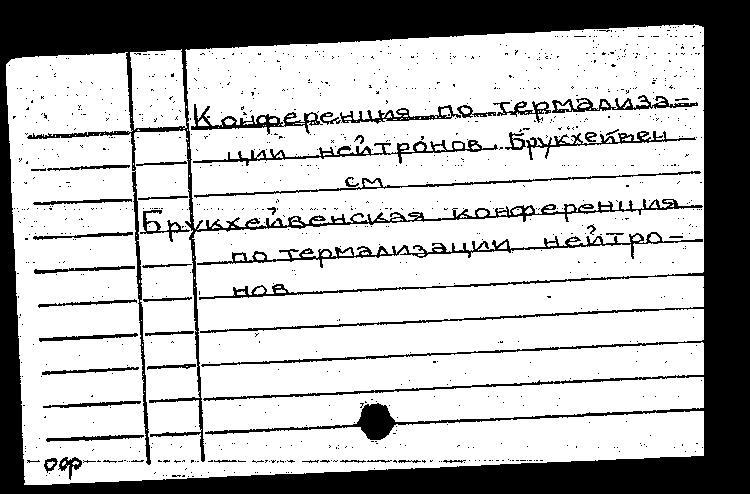 Конференция по термализа-
ции нейтронов. Брукхейвен
см.
Брукхейвенская конференция
по термализации нейтро-
нов
оор